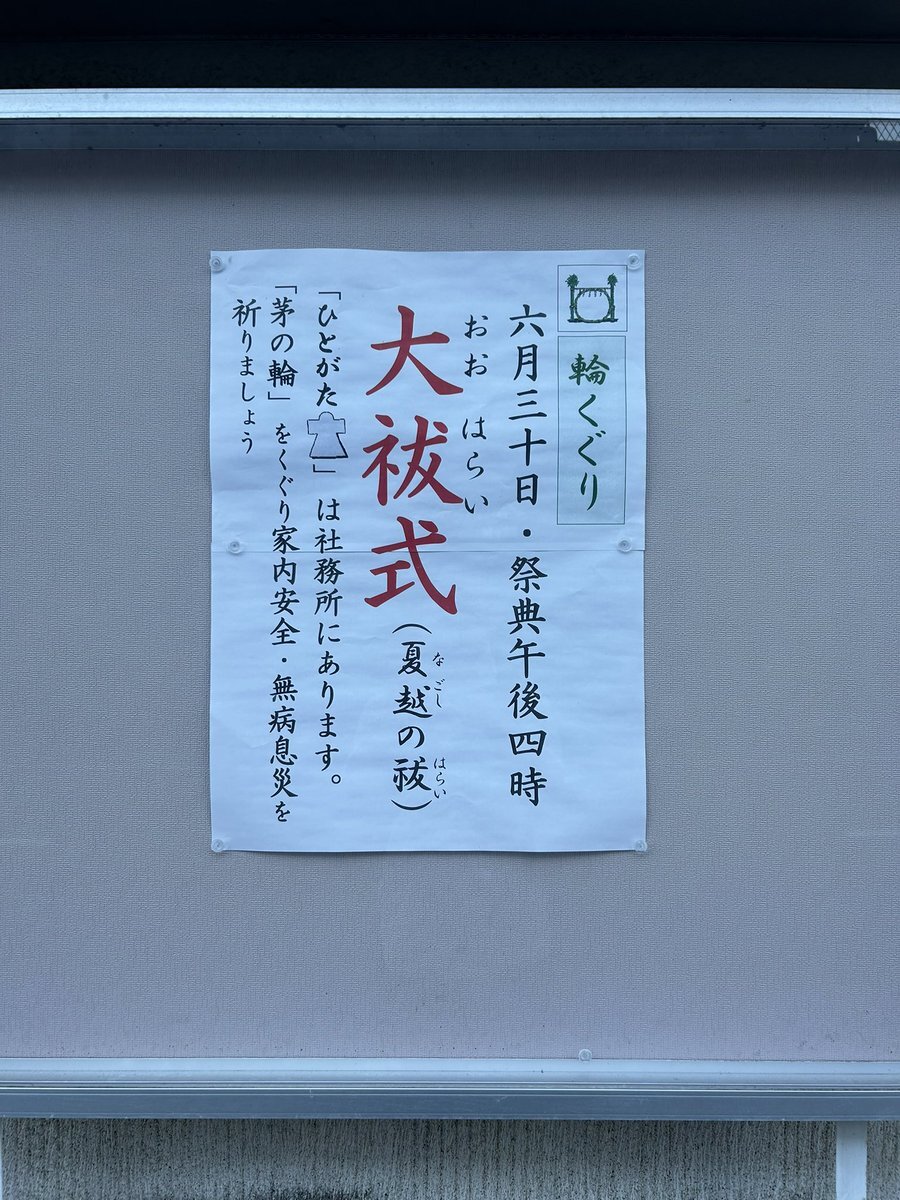 輪くぐり
六月三十日・祭典午後四時
おおはらい
大祓式(夏越の祓)
なごし はらい
「ひとがた」は社務所にあります。
「茅の輪」をくぐり家内安全・無病息災を
祈りましょう